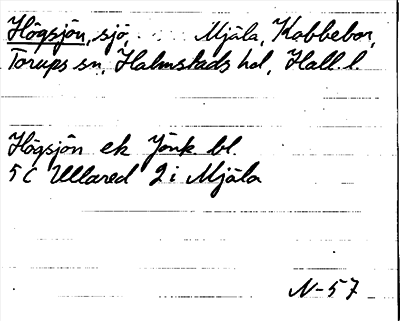 Högsjön, sjö, Mjäla, Kabbebor,
Torups sn, Halmstads hd, Hall. l.
Högsjön ek Jönk. bl.
5 C Ullared 2 i Mjäla
N-57